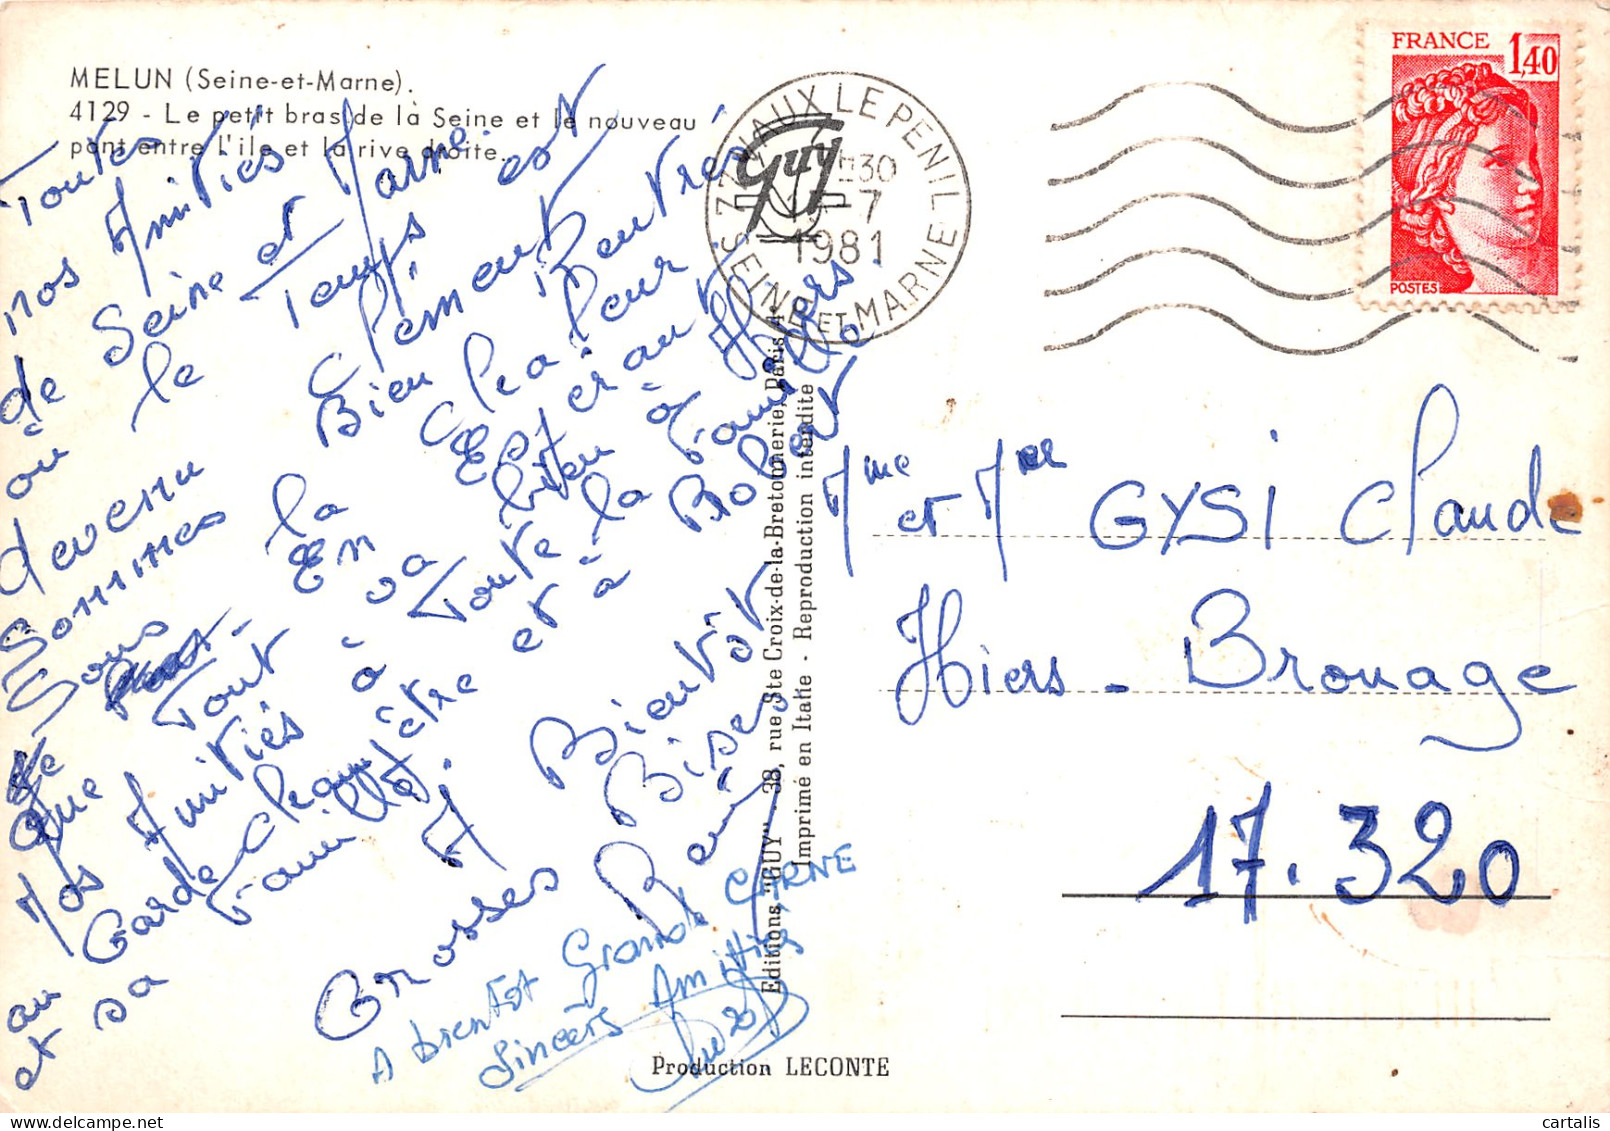 MELUN (Seine-et-Marne).
4129 - Le petit bras de là Seine et le nouveau
pont entre l'île et la rive droite.
Toutes
nos Amitiés
de Seine et Marne
où le Temps est
devenu Clément
Sommes Bien Rentrés
Sous la Chaleur
En Espérant
Que Tout va bien à Hiers
Nos Amitiés à Toute la Famille
au Garde-Champêtre et à Robert
et sa Famille
A Bientôt
Grosses Bises
Remy
A bientot Grand CARNE
Sincères Amitiés
Guy
77 VAUX LE PENIL
SEINE ET MARNE
30
-7
1981
FRANCE 1,40
POSTES
Editions "GUY" - 38, rue Ste Croix-de-la-Bretonnerie, Paris 4
Imprimé en Italie - Reproduction interdite
Production LECONTE
Mme et Mr GYSI Claude
Hiers-Brouage
17.320
cartalis